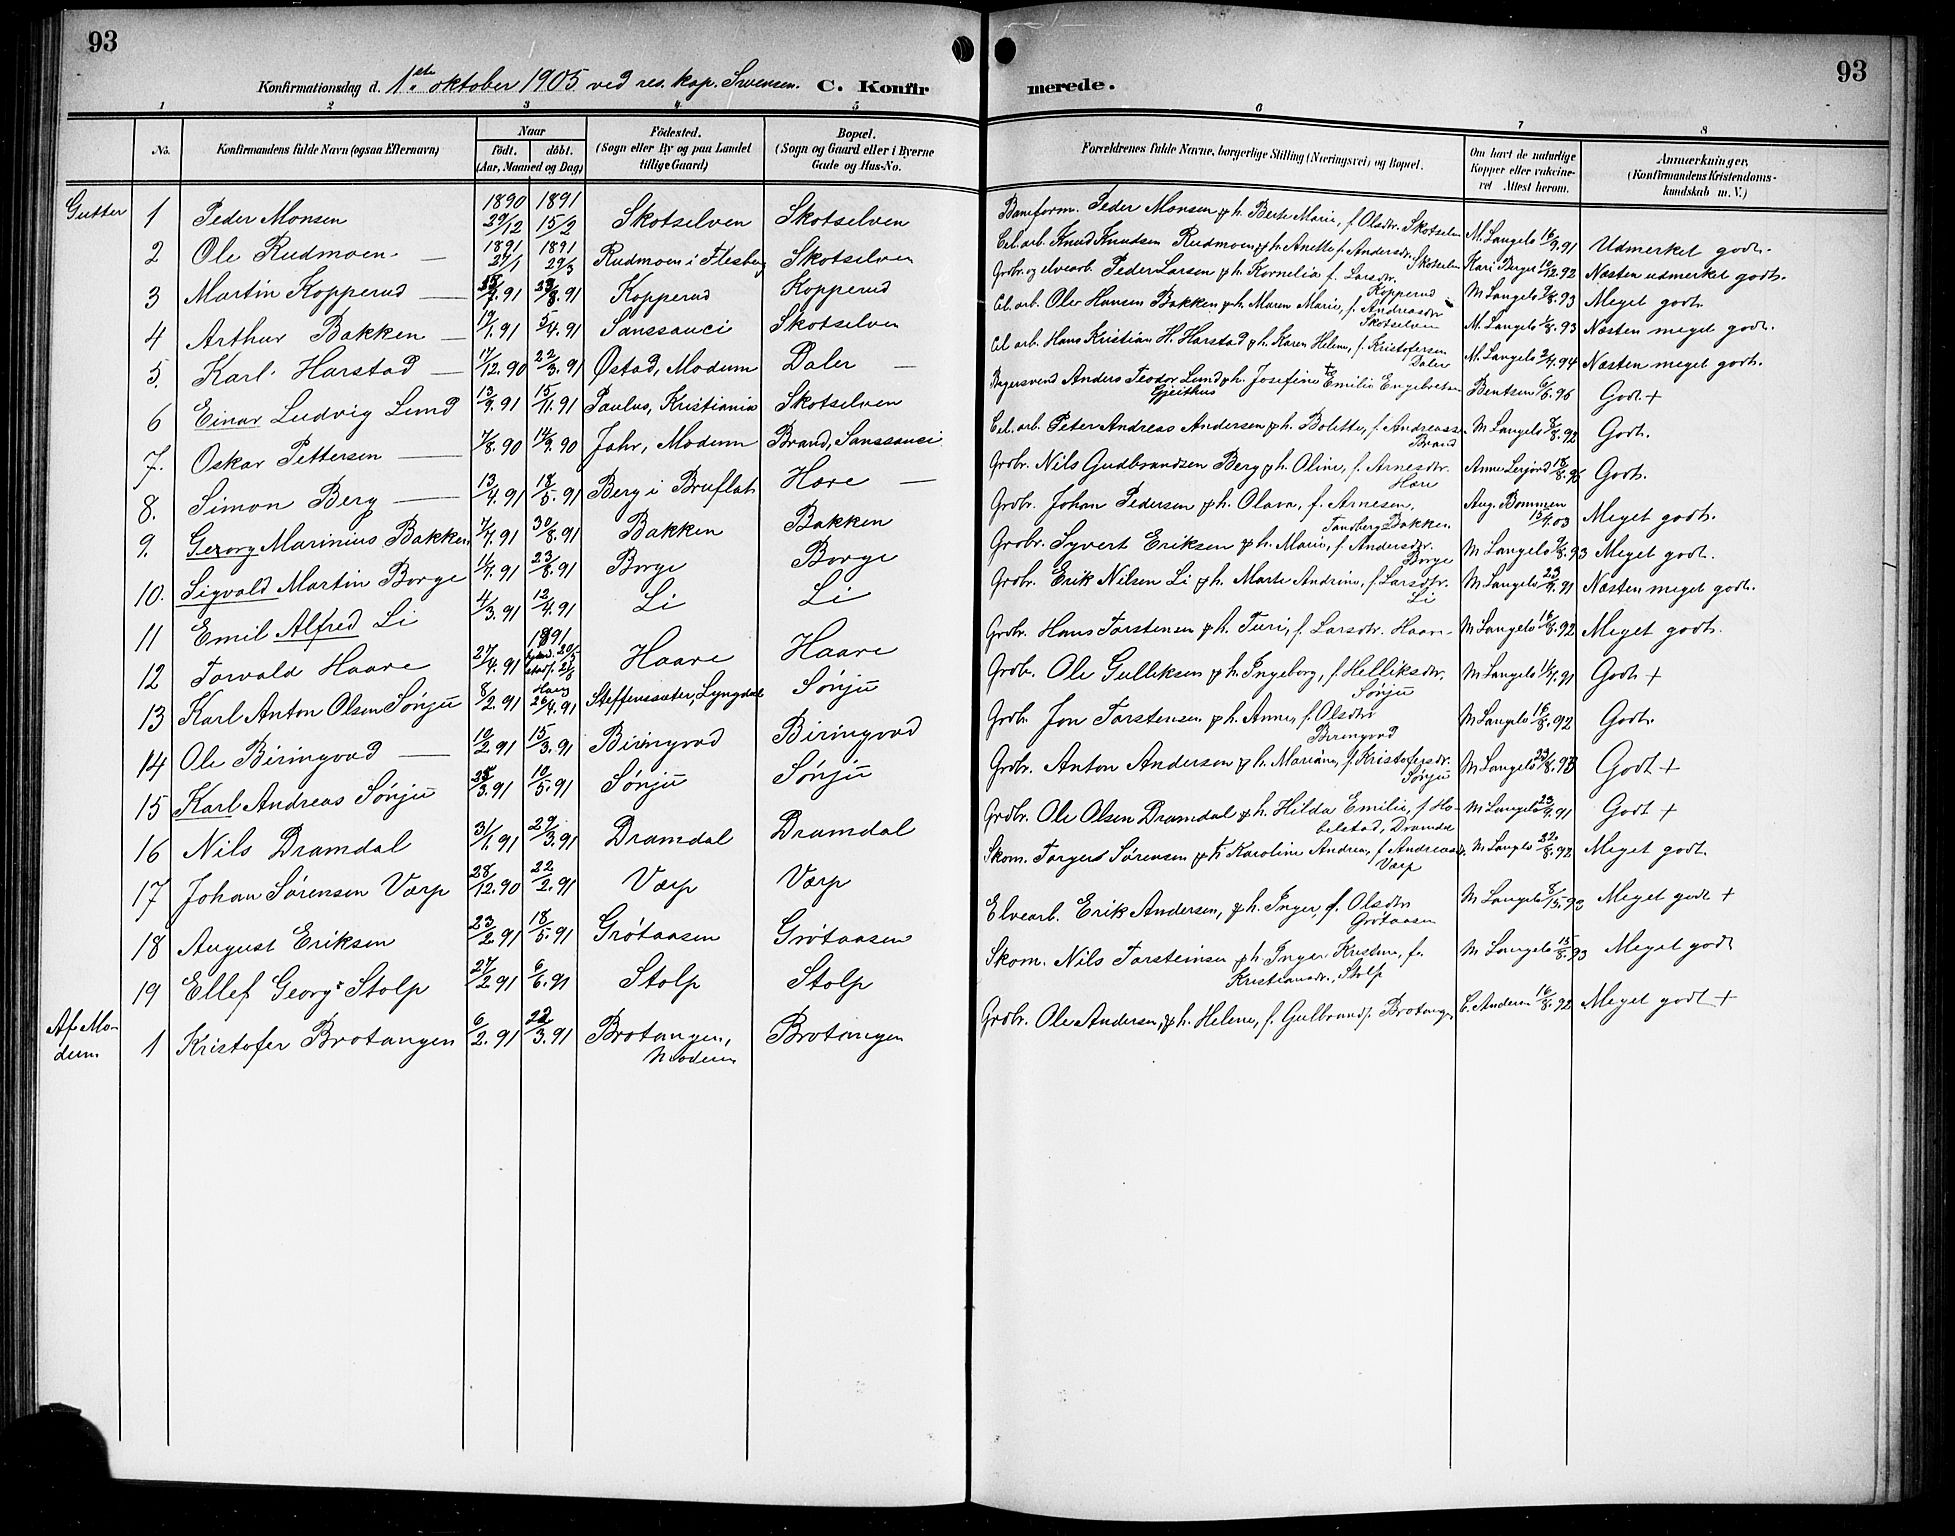 93
93
Konfirmationsdag d. 1ste oktober 1905 ved res. kap. Svensen. C. Konfir merede.
1 2 3 4 5 6 7 8
No. Konfirmandens fulde Navn (ogsaa Efternavn) Naar født. døbt. (Aar, Maaned og Dag) Fødested. (Sogn eller By og paa Landet tillige Gaard) Bopæl. (Sogn og Gaard eller i Byerne Gade og Hus-No.
Forældrenes fulde Navne, borgerlige Stilling (Næringsvei) og Bopæl. Om havt de naturlige Kopper eller vakcineret Attest herom. Anmærkninger, (Konfirmandens Kristendomskundskab m. V.)
Gutter 1 Peder Monsen 1890 29/12 1891 15/2 Skotselven Skotselven Baneform. Peder Monsen & h. Berte Marie, f. Olsdtr. Skotselven M. Langelo 16/9.91 Udmerket godt.
2 Ole Rudmoen 1891 27/1 1891 29/3 Rudmoen i Flesberg Skotselven Cel. arb. Knud Knudsen Rudmoen & h. Anette f. Andersdtr. Skotselven Kari Berger 12/12.92 Næsten udmerket godt.
3 Martin Kopperud 91 23/8.91 Kopperud Kopperud Grdbr. og elvearb. Peder Larsen & h. Kornelia f. Larsdtr. Kopperud M Langelo 7/8.93 Meget godt.
4 Arthur Bakken 19/1.91 5/4.91 Sanssouci Skotselven Cel. arb. Ole Hansen Bakken & h. Maren Marie, f. Andreasdtr Skotselven M. Langelo 7/8.93 Næsten meget godt.
5. Karl Harstad 17/12.90 22/3.91 Østad, Modum Daler Cel arb. Hans Kristian H. Harstad & h. Karen Helene, f. Kristofersen Daler M. Langelo 2/4.94 Næsten meget godt.
6 Einar Ludvig Lund 13/9.91 15/11.91 Paulus, Kristiania Skotselven Bagersvend Anders Teodor Lund & h. Josefine Emilie Engebretsen Gjeithus Bentsen 6/6.96 Godt +
7. Oskar Pettersen 7/8.90 14/9.90 Jahr, Modum Brand, Sanssouci Cel. arb. Peter Andreas Andersen & h. Bolette, f. Andreass. Brand M Langelo 7/8.92 Godt.
8. Simon Berg 13/4.91 18/5.91 Berg i Bruflat Hære Grdbr. Nils Gudbrandsen Berg & h. Oline, f. Arnesdtr. Hære Anne Lerjord 18/8.95 Godt.
9. Georg Marinius Bakken 7/7.91 30/8.91 Bakken Bakken Grdbr. Johan Pedersen & h. Olava, f. Arnesen, Tandberg Bakken Aug. Bommen 15/7.03 Meget godt.
10. Sigvald Martin Borge 11/7.91 23/8.91 Borge Borge Grdbr. Syvert Eriksen & h. Marie, f. Andersdtr. Borge M Langelo 7/8.93 Meget godt.
11 Emil Alfred Li 4/3.91 12/4.91 Li Li Grdbr. Erik Nilsen Li & h. Marte Andrine, f. Larsdtr. Li M Langelo 23/9.91 Næsten meget godt.
12 Torvald Haare 27/4.91 1891 Haare Haare Grdbr. Hans Torstensen & h. Turi, f. Larsdtr. Haare M Langelo 16/8.92 Meget godt.
13 Karl Anton Olsen Sønju 8/2.91 26/4.91 Steffensæter, Lyngdal Sønju Grdb. Ole Gulliksen & h. Ingeborg, f. Helliksdtr. Sønju M Langelo 11/7.91 Godt +
14 Ole Biringvad 10/2.91 15/3.91 Biringvad Biringvad Grdbr Jon Torstensen & h. Anne, f. Olsdtr Biringvad M Langelo 16/8.92 Godt.
15 Karl Andreas Sønju 25/3.91 10/5.91 Sønju Sønju Grdbr. Anton Andersen & h. Mariane, f. Kristofersdtr. Sønju M Langelo Godt +
16 Nils Dramdal 31/1.91 29/3.91 Dramdal Dramdal Grdbr. Ole Olsen Dramdal & h. Hilda Emilie, f. Hobelstad, Dramdal M Langelo 23/9.91 Godt +
17 Johan Sørensen Værp 28/12.90 22/2.91 Værp Værp Skom. Torgers Sørensen & h. Karoline Andrea, f. Andreasd. Værp M Langelo 22/8.92 Meget godt
18 August Eriksen 23/2.91 18/5.91 Grøtaasen Grøtaasen Elvearb. Erik Andersen, & h. Inger, f. Olsdtr Grøtaasen M Langelo 93 Meget godt +
19 Ellef Georg Stolp 27/2.91 6/6.91 Stolp Stolp Skom. Nils Torsteinsen & h. Inger Kristine, f. Kristiansdtr., Stolp M Langelo 15/8.93 Meget godt
Af Modum 1 Kristofer Brotangen 6/2.91 22/3.91 Brotangen, Modum Brotangen Grdbr. Ole Andersen, & h. Helene, f. Gulbrands. Brotangen C. Andersen 16/8.92 Meget godt +